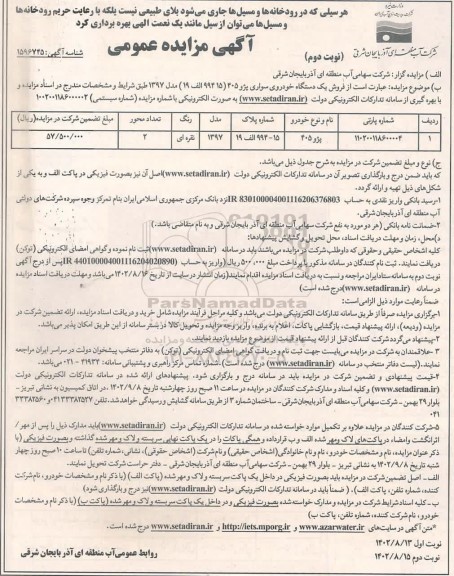 هر سیلی که در رودخانه‌ها و مسیل‌ها جاری می‌شود بلای طبیعی نیست بلکه با رعایت حریم رودخانه‌ها
و مسیل‌ها می‌توان از سیل مانند یک نعمت الهی بهره برداری کرد
آگهی مزایده عمومی
(نوبت دوم)
شناسه آگهی: ۱۵۹۶۷۴۵
شرکت آب منطقه‌ای آذربایجان شرقی
الف ) مزایده گزار : شرکت سهامی آب منطقه ای آذربایجان شرقی
ب) موضوع مزایده: عبارت است از فروش یک دستگاه خودروی سواری پژو ۴۰۵ (۱۵ ۹۹۴ الف ۱۹) مدل ۱۳۹۷ طبق شرایط و مشخصات مندرج در اسناد مزایده و
با بهره گیری از سامانه تدارکات الکترونیکی دولت (www.setadiran.ir) به صورت الکترونیکی با شماره مزایده (شماره سیستمی) ۱۰۰۲۰۰۱۱۸۶۰۰۰۰۰۲
ردیف شماره پارتی نام و نوع خودرو شماره پلاک مدل رنگ تعداد محور مبلغ تضمین شرکت در مزایده(ریال)
۱ ۱۱۰۲۰۰۱۱۸۶۰۰۰۰۴ پژو ۴۰۵ ۱۵-۹۹۴ الف ۱۹ ۱۳۹۷ نقره ای ۲ ۵۷/۵۰۰/۰۰۰
ج) نوع و مبلغ تضمین شرکت در مزایده به شرح جدول ذیل می‌باشد.
که باید ضمن درج و بارگذاری تصویر آن در سامانه تدارکات الکترونیکی دولت (www.setadiran.ir) اصل آن نیز بصورت فیزیکی در پاکت الف و به یکی از
شکل‌های ذیل تهیه و ارائه گردد.
۱-رسید بانکی واریز نقدی به حساب IR 830100004001116206376803 نزد بانک مرکزی جمهوری اسلامی ایران بنام تمرکز وجوه سپرده شرکت‌های دولتی
آب منطقه ای آذربایجان شرقی.
۲-ضمانت نامه بانکی (هر دو مورد به نفع شرکت سهامی آب منطقه ای آذربایجان شرقی و به نام متقاضی باشد.)
د)محل، زمان و مهلت دریافت اسناد، محل تحویل و گشایش پیشنهادها:
کلیه اشخاص حقیقی و حقوقی که داوطلب شرکت در مزایده می‌باشند باید در سامانه (www.setadiran.ir) ثبت نام نموده و گواهی امضای الکترونیکی (توکن)
دریافت نمایند. ثبت نام کنندگان در سامانه مذکور با پرداخت مبلغ ۵۰۰,۰۰۰ ریال (واریز به حساب IR 440100004001116204020890) پس از درج آگهی
نوبت دوم به سامانه ستاد ایران مراجعه و نسبت به دریافت اسناد مزایده اقدام نمایند(زمان انتشار در سایت از تاریخ ۱۴۰۲/۸/۱۶ می باشد و مهلت دریافت اسناد مزایده
در سامانه (www.setadiran.ir) درج شده است)
ضمنا رعایت موارد ذیل الزامی است:
۱-برگزاری مزایده صرفاً از طریق سامانه تدارکات الکترونیکی دولت می‌باشد و کلیه مراحل فرآیند مزایده شامل خرید و دریافت اسناد مزایده، ارائه تضمین شرکت در
مزایده (ودیعه)، ارائه پیشنهاد قیمت، بازگشایی پاکات، اعلام به برنده، واریز وجه مزایده و تحویل کالا در بستر سامانه از این طریق امکان پذیر می‌باشد.
۲-پیشنهاد می‌گردد شرکت کنندگان قبل از ارائه پیشنهاد قیمت از موضوع مزایده بازدید نمایند.
۳-علاقمندان به شرکت در مزایده می‌بایست جهت ثبت نام و دریافت گواهی امضای الکترونیکی (توکن) به دفاتر منتخب پیشخوان دولت در سراسر ایران مراجعه
نمایند.(لیست دفاتر منتخب در سامانه (www.setadiran.ir) درج شده است). شماره تماس مرکز راهبری و پشتیبانی سامانه: ۴۱۹۳۴-۰۲۱ می‌باشد.
۴-قیمت پیشنهادی و تضمین شرکت در مزایده باید در سامانه درج و بارگذاری شود. پیشنهادهای ارائه شده در سامانه تدارکات الکترونیکی دولت
(www.setadiran.ir) و کلیه اسناد و مدارک شرکت کنندگان در مزایده در ساعت ۱۱ صبح روز چهارشنبه تاریخ ۱۴۰۲/۹/۸ ، در اتاق کمیسیون به نشانی تبریز -
بلوار ۲۹ بهمن- شرکت سهامی آب منطقه ای آذربایجان شرقی - ساختمان شماره ۳ از طریق سامانه گشایش و رسیدگی خواهد شد. تلفن
۰۴۱
۵-شرکت کنندگان در مزایده علاوه بر تکمیل موارد خواسته شده در سامانه تدارکات الکترونیکی دولت (www.setadiran.ir) باید مدارک ذیل را پس از مهر /
اثر انگشت و امضاء در پاکت‌های لاک و مهر شده الف و ب قرار داده و همگی پاکات را در یک پاکت نهایی سربسته ولاک و مهر شده گذاشته و بصورت فیزیکی (با
ذکر عنوان مزایده، نام و مشخصات خودرو، نام و نام خانوادگی(اشخاص حقیقی) و نام شرکت (اشخاص حقوقی)، نشانی ،شماره تلفن) تا ساعت ۱۰ صبح روز چهار
شنبه تاریخ ۱۴۰۲/۹/۸ به نشانی تبریز - بلوار ۲۹ بهمن - شرکت سهامی آب منطقه ای آذربایجان شرقی - دفتر حراست شرکت تحویل نمایند.
الف - اصل تضمین شرکت در مزایده باید بصورت فیزیکی در داخل یک پاکت سربسته ولاک و مهر شده (پاکت الف) (با ذکر نام و مشخصات خودرو، نام شرکت
کننده، شماره تلفن، پاکت الف). ( ضمناً باید در سامانه تدارکات الکترونیکی دولت (www.setadiran.ir) نیز درج و بارگذاری شود)
ب - کلیه اسناد شرایط شرکت در مزایده و مدارک خواسته شده بصورت فیزیکی و در داخل یک پاکت سربسته ولاک ومهر شده (پاکت ب) (با ذکر نام و مشخصات
خودرو، نام شرکت کننده، شماره تلفن، پاکت ب)
*متن آگهی در سایت‌های www.azarwater.ir و http://iets.mporg.ir و www.setadiran.ir درج شده است.
نوبت اول ۱۴۰۲/۸/۱۳
نوبت دوم ۱۴۰۲/۸/۱۵
روابط عمومی آب منطقه ای آذربایجان شرقی
ParsNamadData